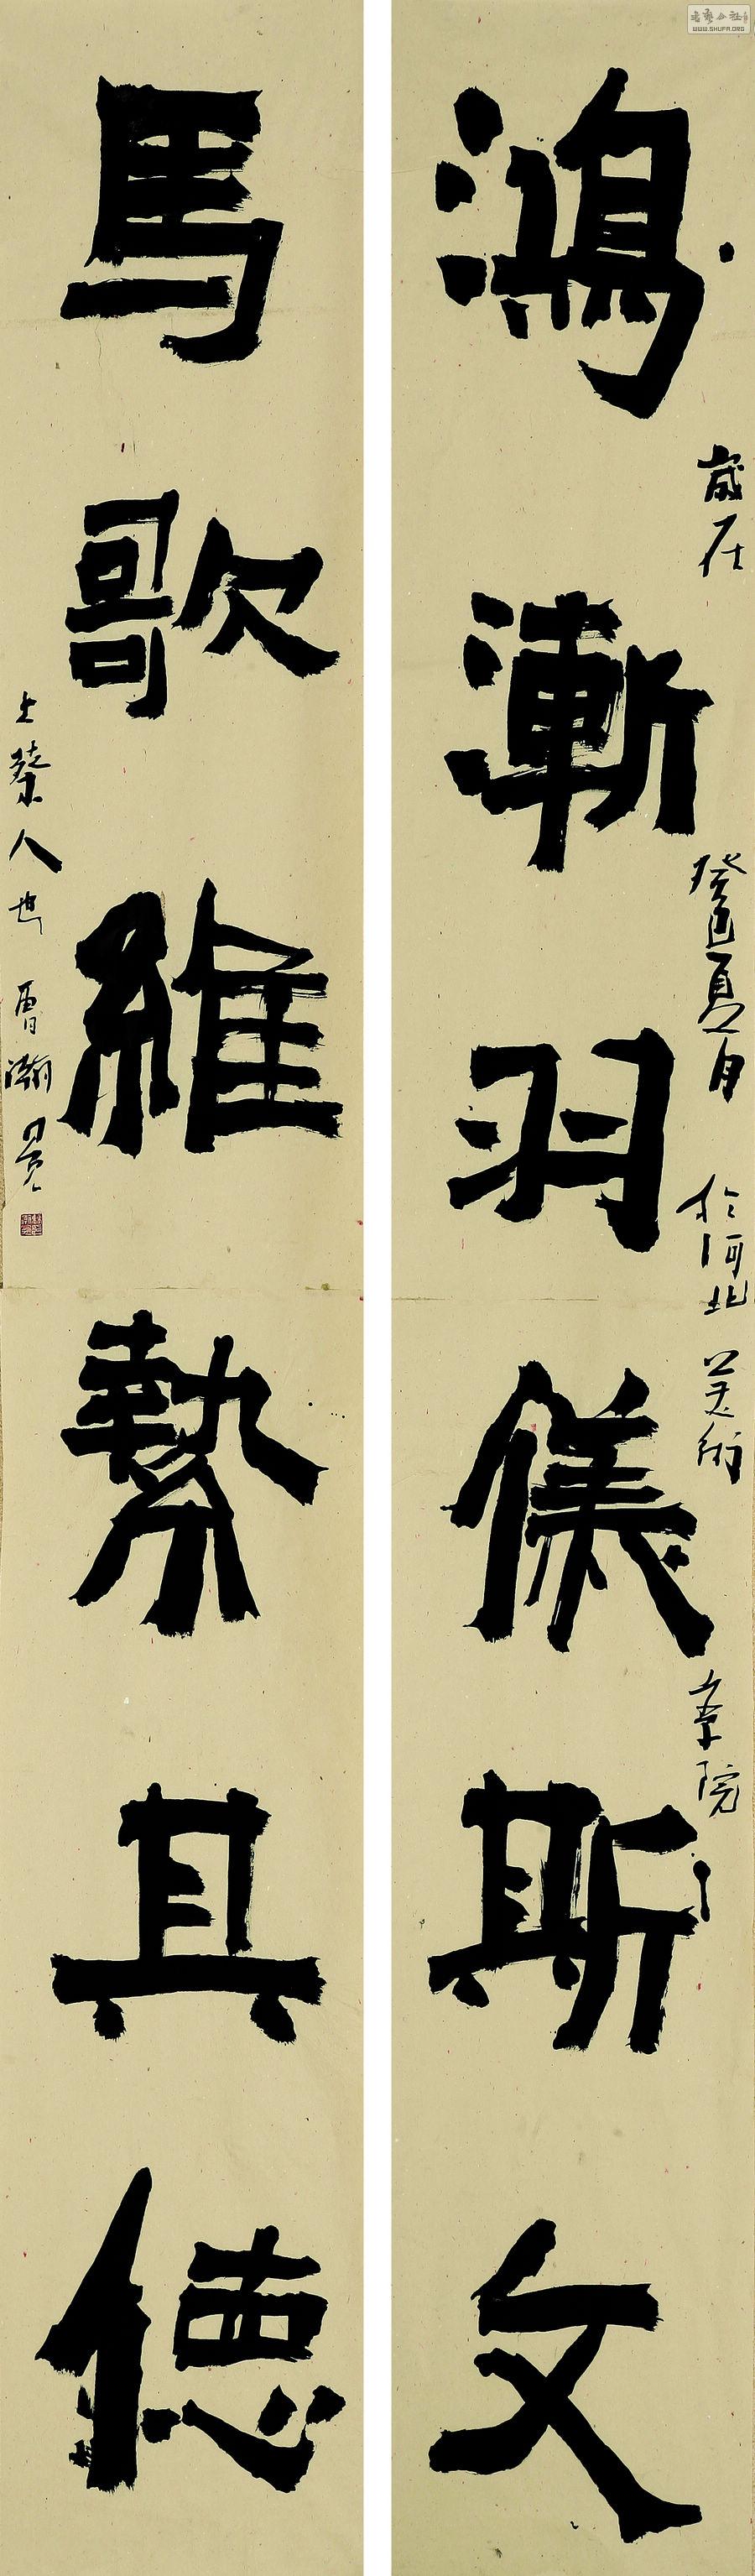 鴻漸羽儀斯文
歲在癸巳夏月於河北美術學院
馬歌維縶其德
上蔡人也曹瀚景
书艺公社
WWW.SHUFA.ORG